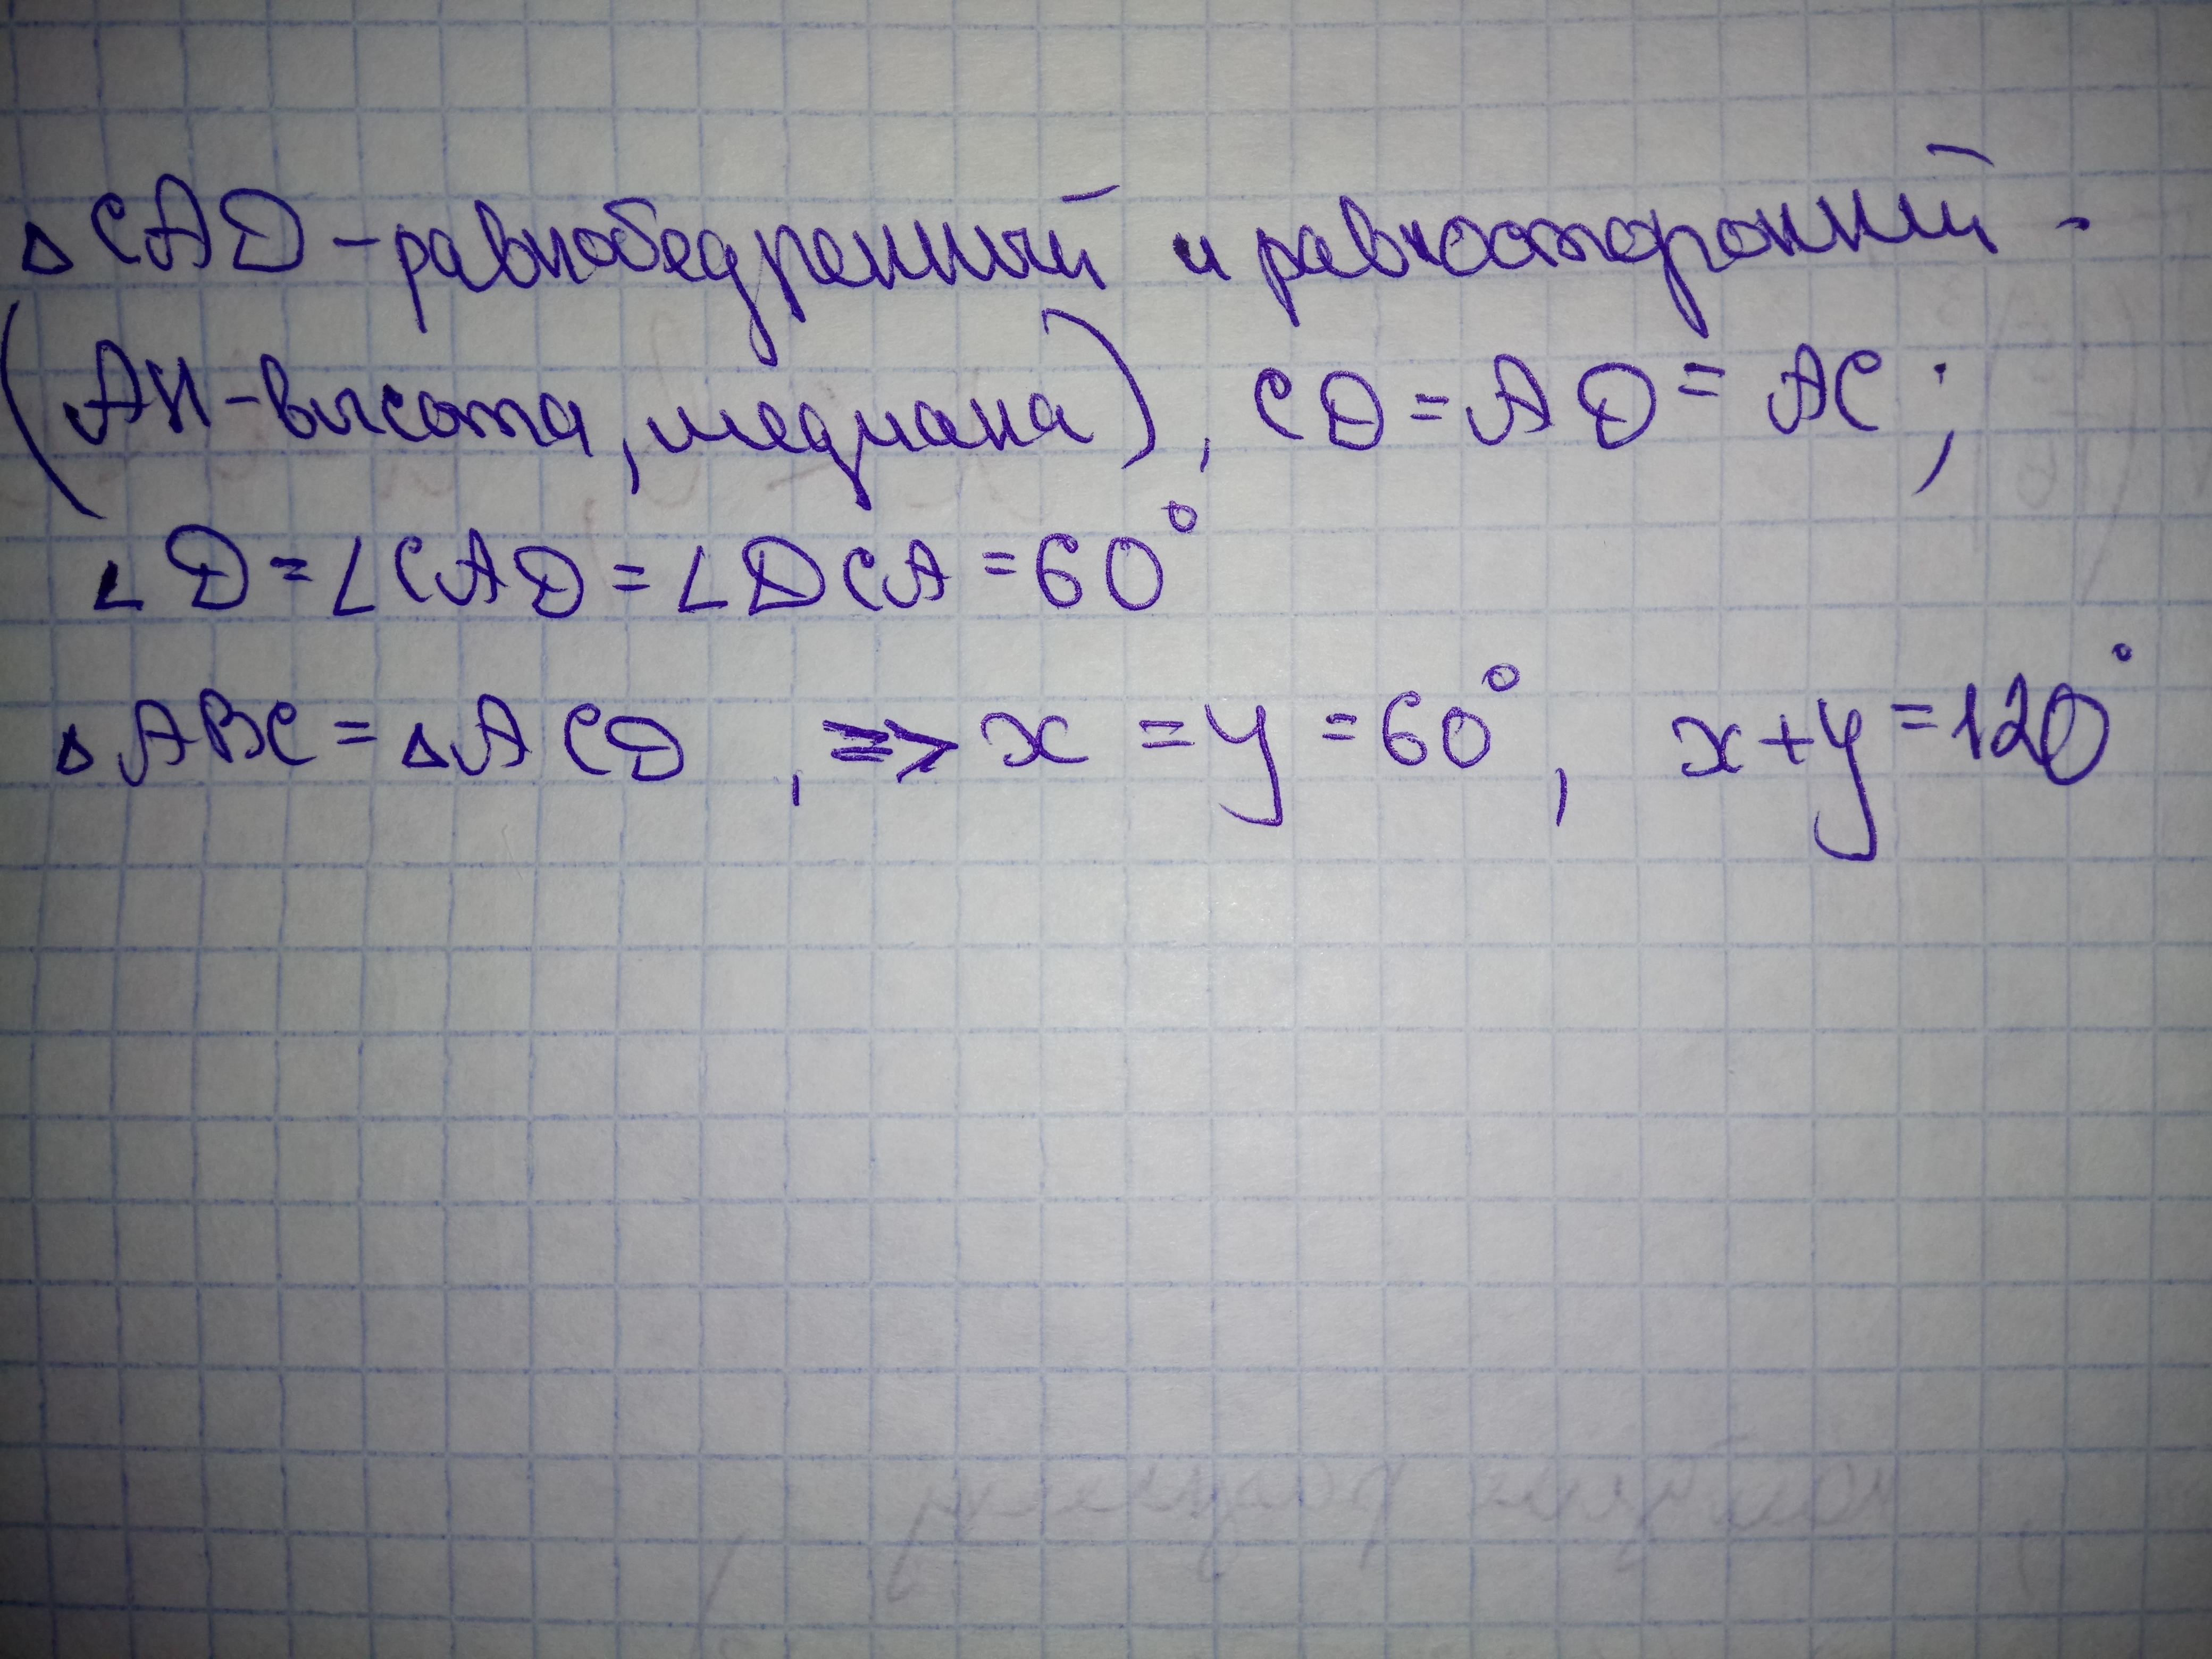 △CAD - равнобедренный и равносторонний -
(AH - высота, медиана), CD = AD = AC;
∠D = ∠CAD = ∠DCA = 60°
△ABC = △ACD, => x = y = 60°, x + y = 120°